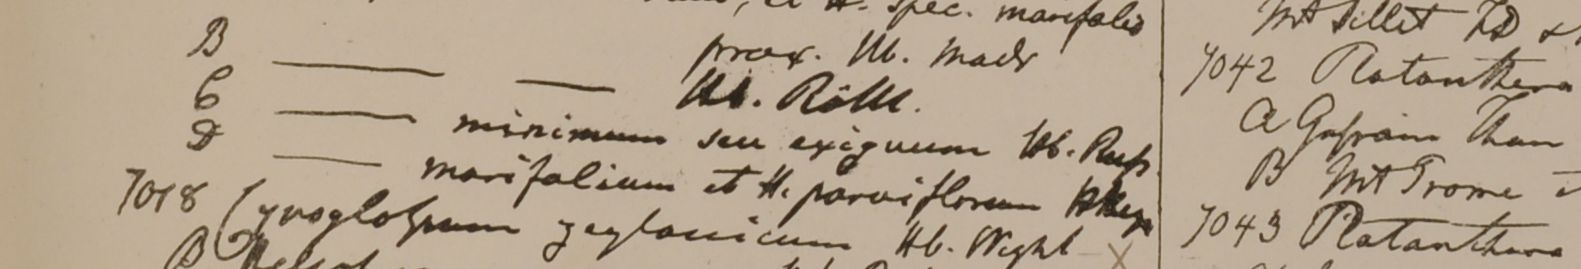 et H. spec. marifolio
B ——— ——— prox. Hb. Madr
C ——— Hb. Röttl.
D ——— minimum seu exiguum Hb. Russ
marifolium et H. parviflorum Hb Heyn
7018 Cynoglossum zeylanicum Hb. Wight X
B
Mt Sillet FD &
7042 Platanthera
A
B Mt Prome
7043 Platanthera